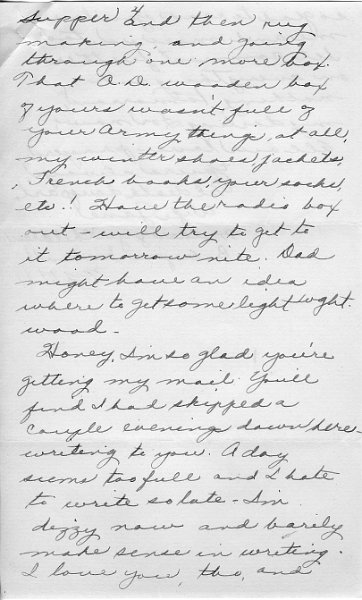 supper & and then rug
making, and going
through one more box.
That O.D. wooden box
of yours wasn't full of
your Army things, at all,
my winter shoes, jackets,
, French books, your socks,
etc.! Have the radio box
out - will try to get to
it tomorrow nite. Dad
might have an idea
where to get some light wght.
wood -
Honey, I'm so glad you're
getting my mail. You'll
find I had skipped a
couple evenings down here -
writing to you. A day
seems too full and I hate
to write so late - I'm
dizzy now and barily
make sense in writing.
I love you, tho, and